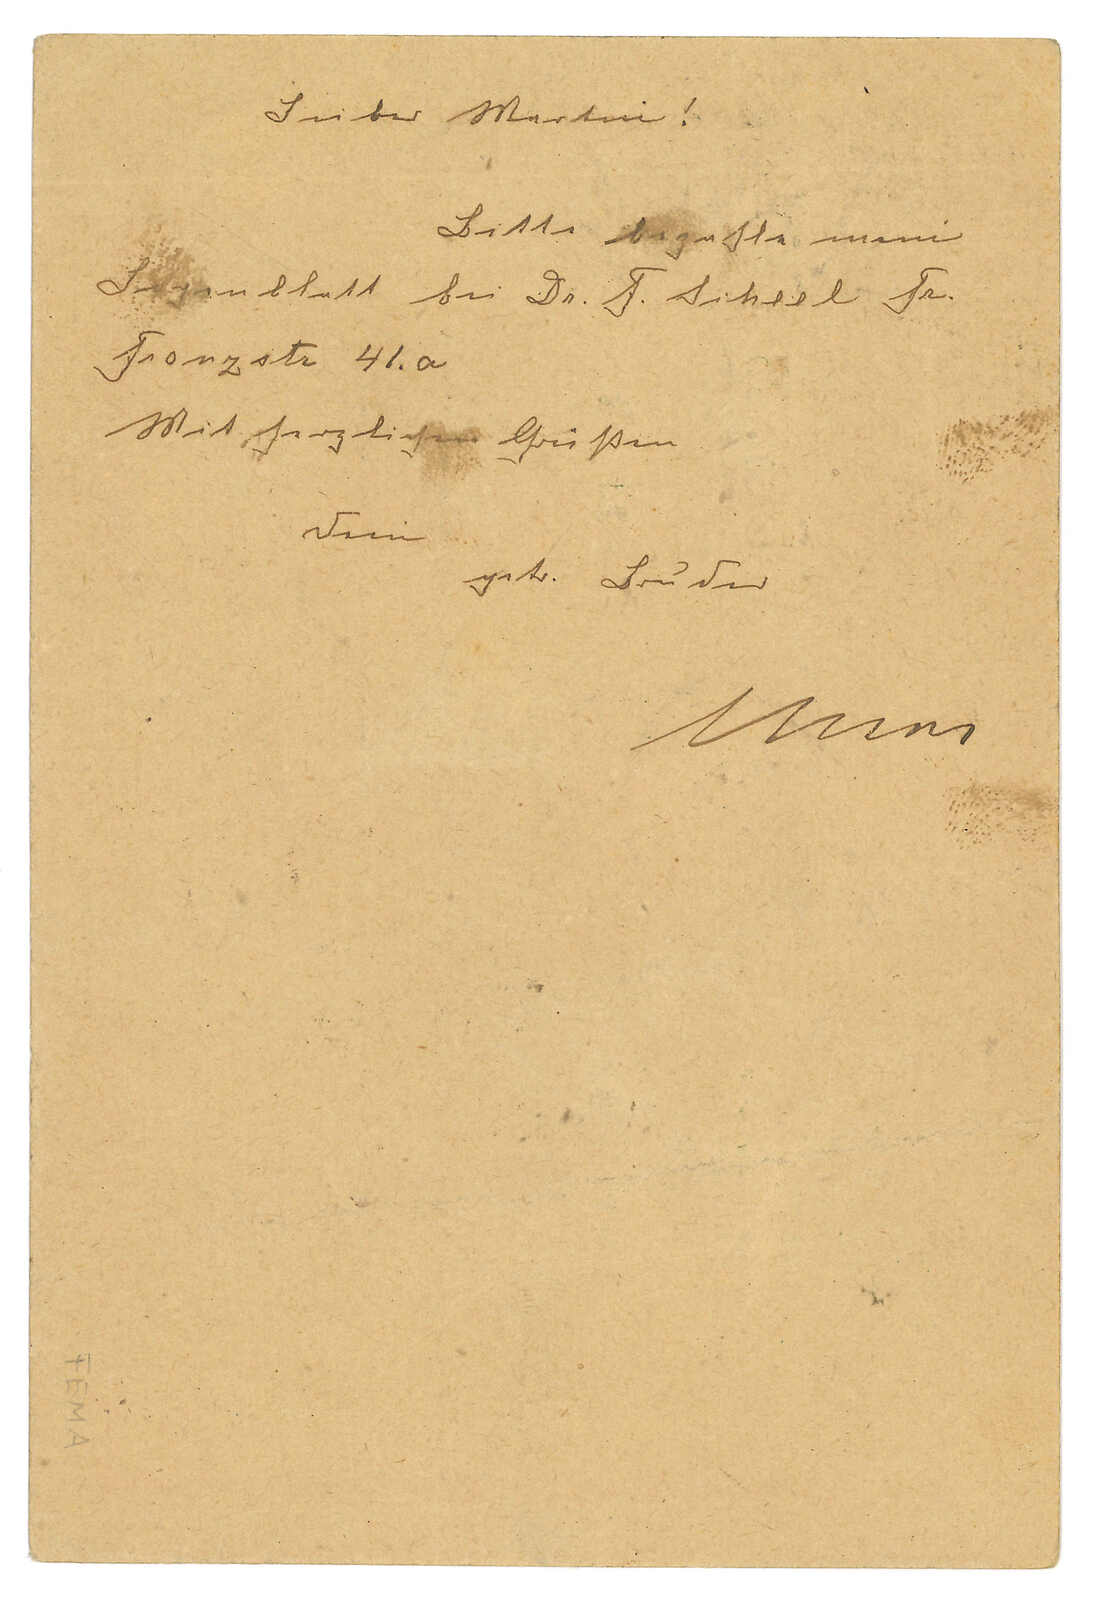 Lieber Martin!
Bitte bezahle mein
bei Dr. F. Scheel Fr.
Franzstr 41.a
Mit herzlichen Grüßen
Dein
getr. Bruder
FEMA